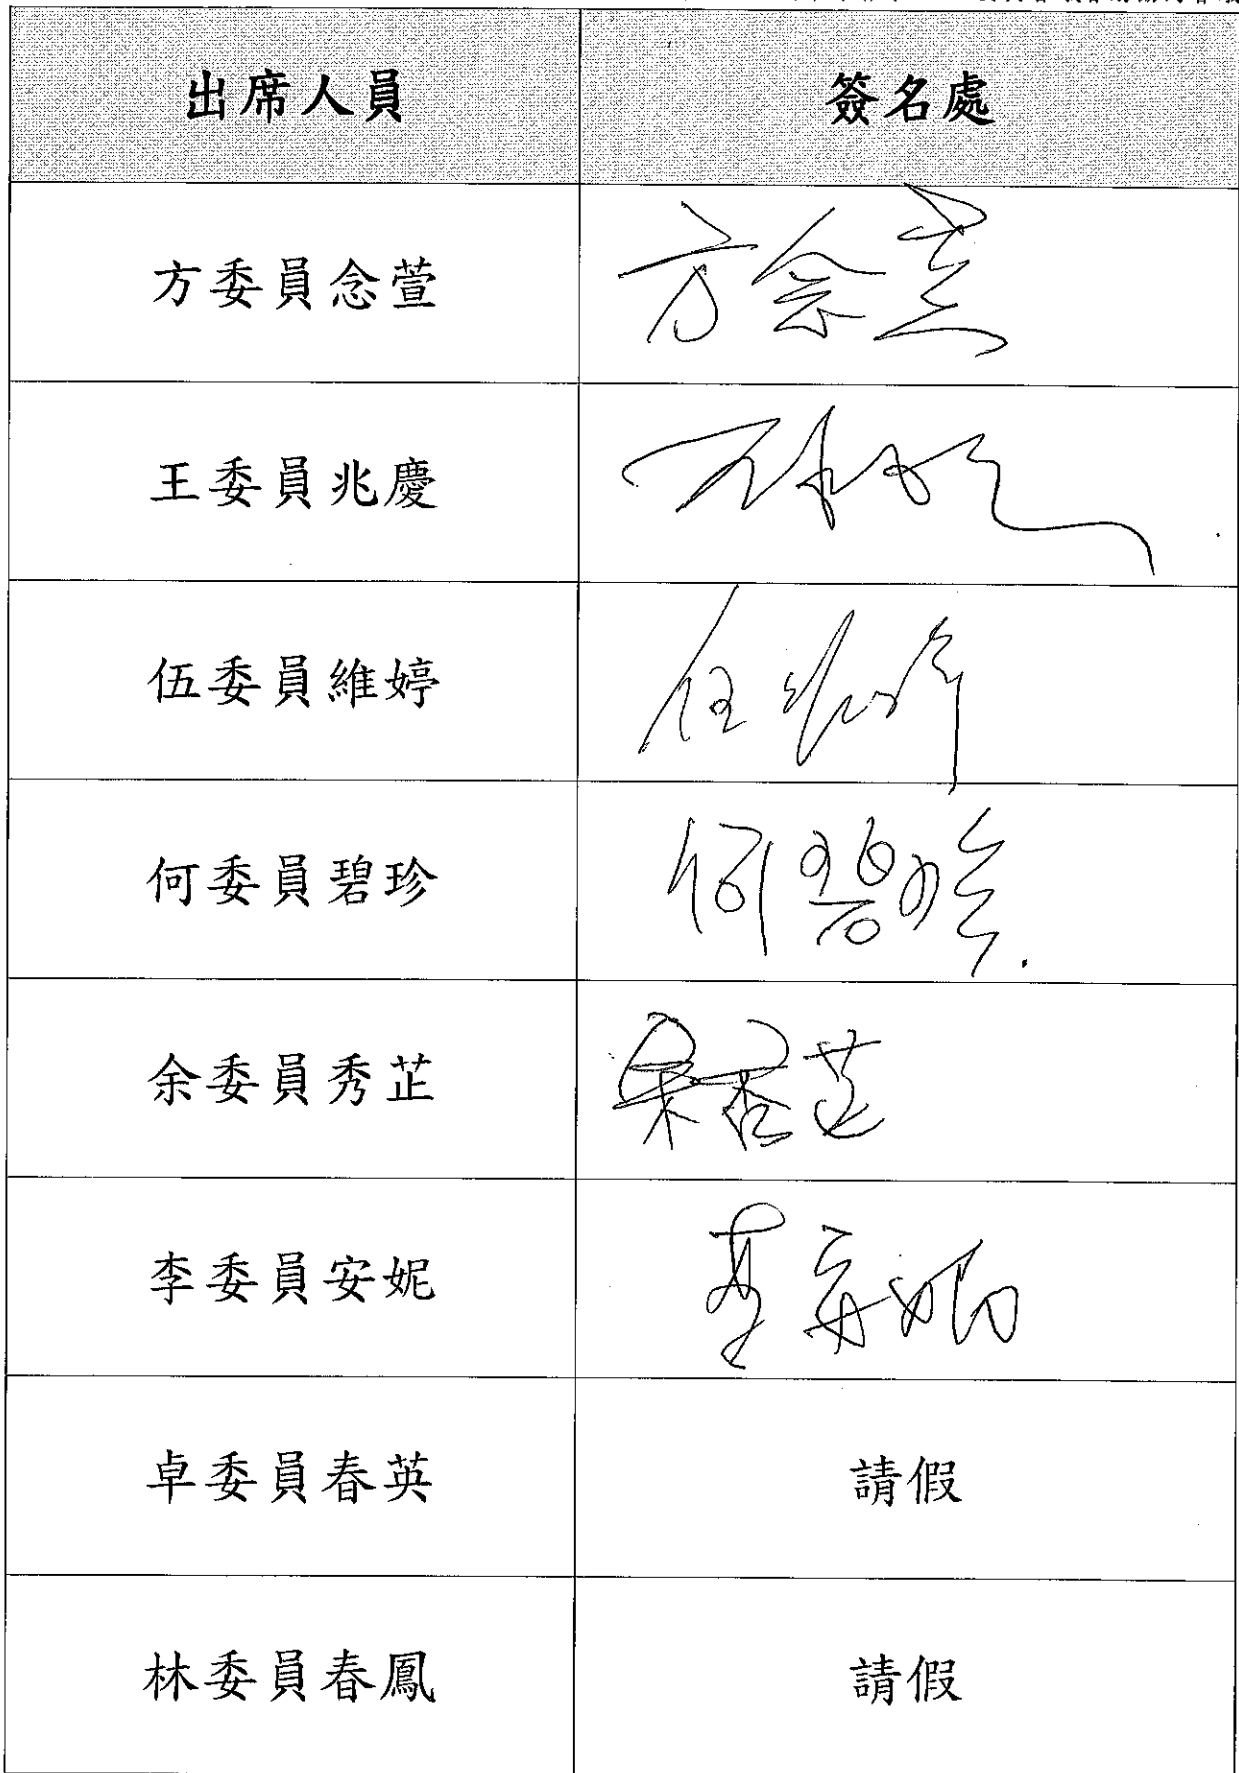 出席人員 簽名處
方委員念萱 方念萱
王委員兆慶
伍委員維婷
何委員碧珍 何碧珍
余委員秀芷 余秀芷
李委員安妮 李安妮
卓委員春英 請假
林委員春鳳 請假